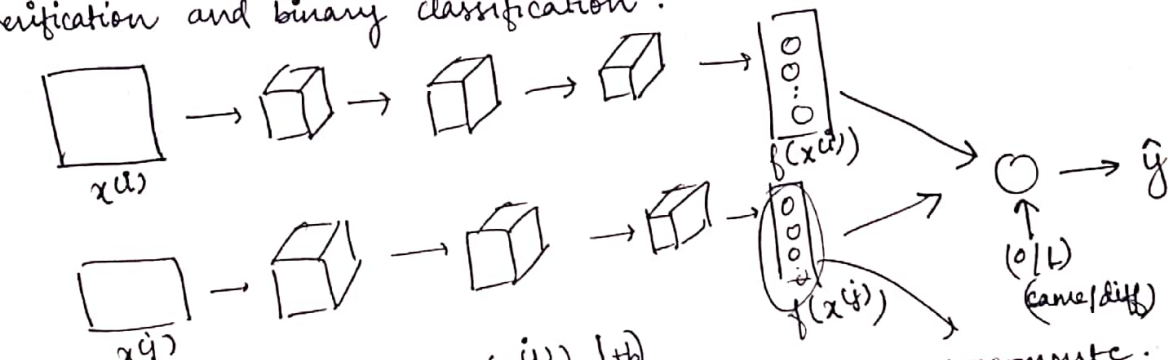 erification and binary classification.
f(x⁽ⁱ⁾)
x⁽ⁱ⁾
ŷ
(0/1)
(same/diff)
f(x⁽ʲ⁾)
x⁽ʲ⁾